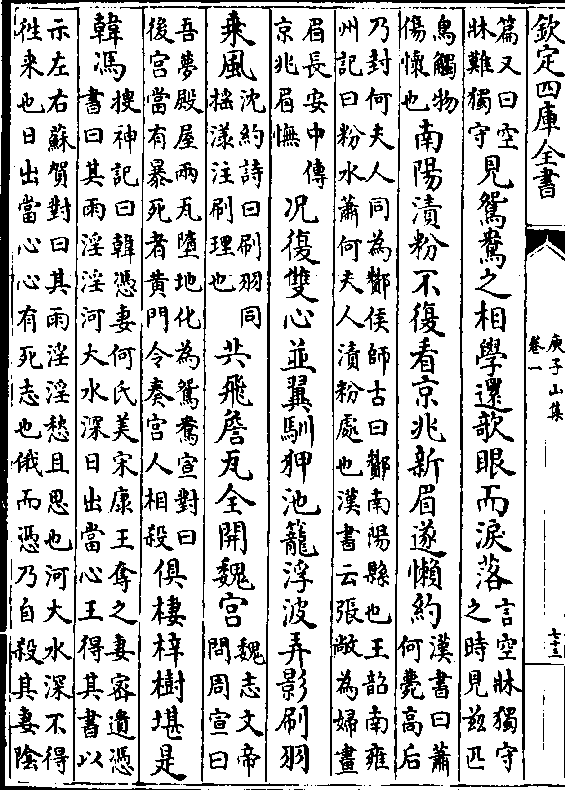 欽定四庫全書
庚子山集
卷一
七十三
篇又曰空
牀難獨守
見鴛鴦之相學還欹眼而淚落
言空牀獨守
之時見兹匹
鳥觸物
傷懷也
南陽漬粉不復看京兆新眉遂懶約
漢書曰蕭
何薨高后
乃封何夫人同為酇侯師古曰酇南陽縣也王韶南雍
州記曰粉水蕭何夫人漬粉處也漢書云張敞為婦畫
眉長安中傳
京兆眉憮
况復雙心並翼馴狎池籠浮波弄影刷羽
乗風
沈約詩曰刷羽同
揺漾注刷理也
共飛簷瓦全開魏宮
魏志文帝
問周宣曰
吾夢殿屋兩瓦墮地化為鴛鴦宣對曰
後宮當有暴死者黄門令奏宮人相殺
俱棲梓樹堪是
韓馮
搜神記曰韓憑妻何氏美宋康王奪之妻密遺憑
書曰其雨淫淫河大水深日出當心王得其書以
示左右蘇賀對曰其雨淫淫愁且思也河大水深不得
徃来也日出當心心有死志也俄而憑乃自殺其妻陰